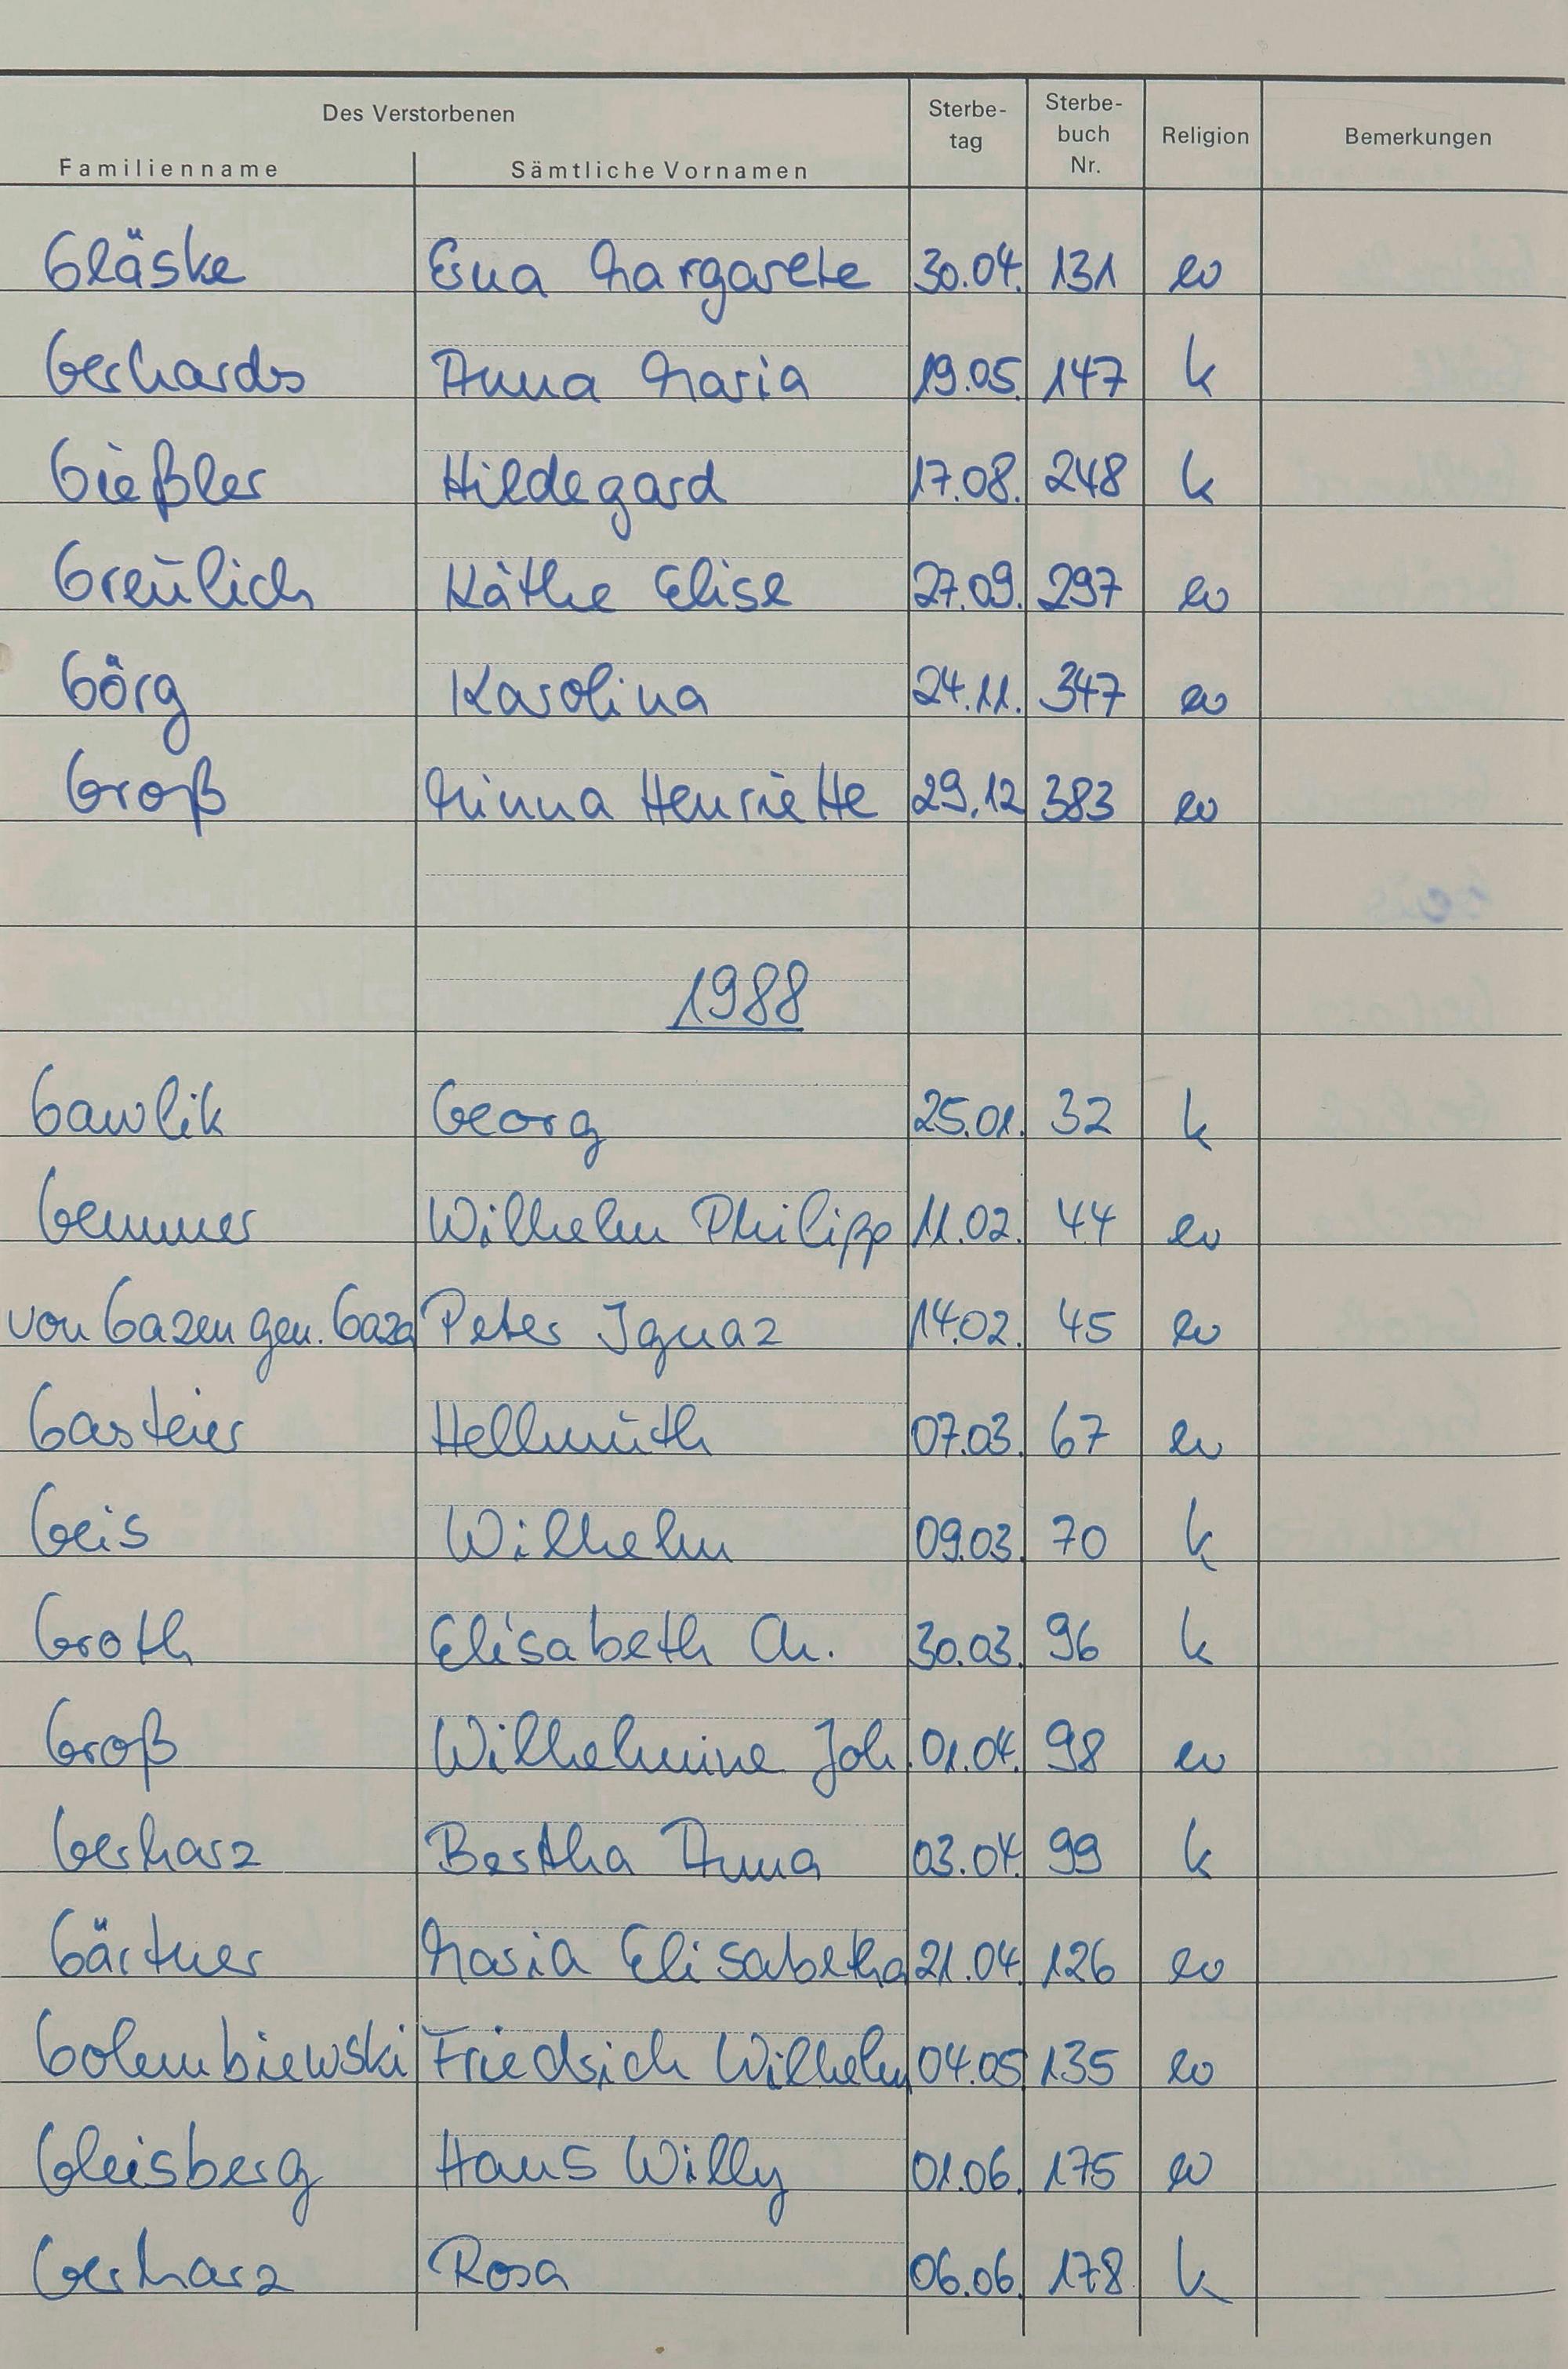 Des Verstorbenen
Familienname Sämtliche Vornamen Sterbe-tag Sterbe-buch Nr. Religion Bemerkungen
Gläske Eva Margarete 30.04. 131 ev
Gerhards Anna Maria 19.05. 147 k
Gießler Hildegard 17.08. 248 k
Greulich Käthe Elise 27.09. 297 ev
Görg Karolina 24.11. 347 ev
Groß Minna Henriette 29.12 383 ev
1988
Gawlik Georg 25.01. 32 k
Gemmer Wilhelm Philipp 11.02. 44 ev
von Gazen gen. Gaza Peter Ignaz 14.02. 45 ev
Gasteier Hellmuth 07.03. 67 ev
Geis Wilhelm 09.03. 70 k
Groth Elisabeth M. 30.03. 96 k
Groß Wilhelmine Joh. 01.04. 98 ev
Gerharz Bertha Anna 03.04. 99 k
Gärtner Maria Elisabetha 21.04. 126 ev
Golembiewski Friedrich Wilhelm 04.05 135 ev
Gleisberg Hans Willy 01.06. 175 ev
Gerharz Rosa 06.06. 178 k